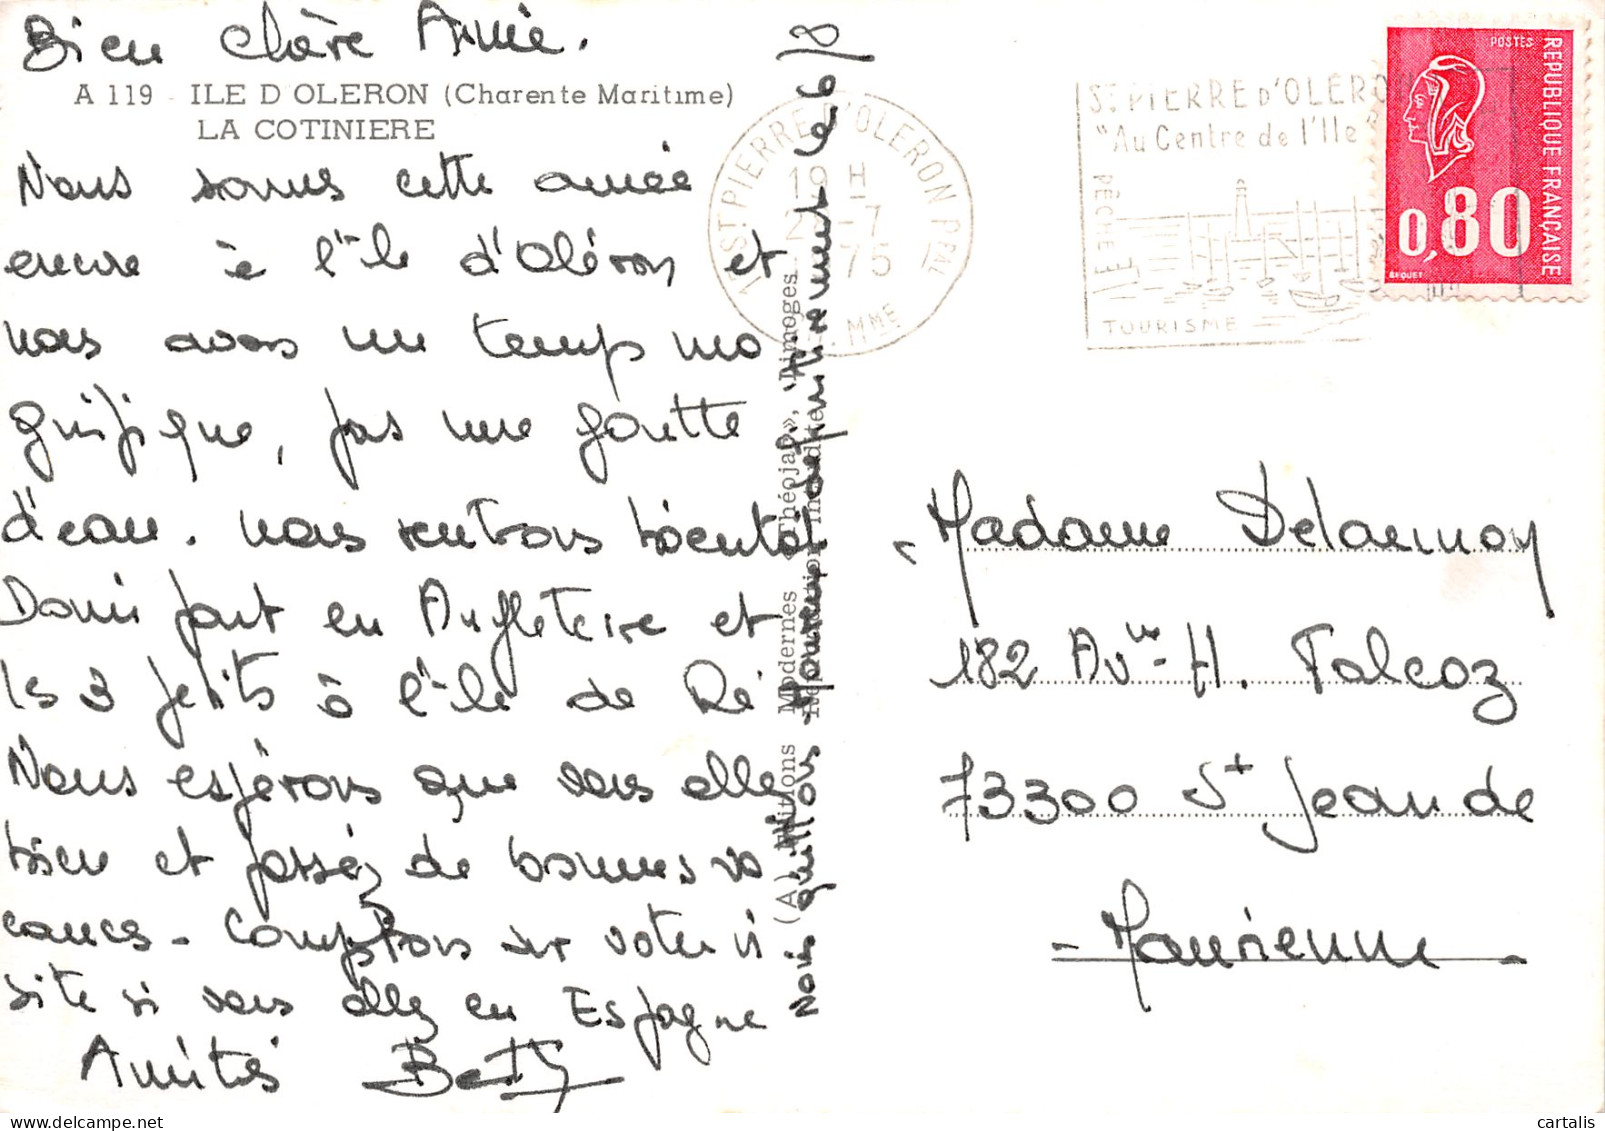 Bien chère Amie.
A 119 - ILE D OLERON (Charente Maritime)
LA COTINIERE
Nous sommes cette année
encore à l'île d'Oléron et
nous avons un temps ma
gnifique, pas une goutte
d'eau. nous rentrons bientôt
Domi part en Angleterre et
les 3 petits à l'île de Ré
Nous espérons que vous allez
bien et passez de bonnes va
cances - Comptons sur votre vi
site si vous allez en Espagne
Amitiés Betty
Nous quittons Maureu définitivement le 6/8
(A) Editions Modernes «Théojac», Limoges
Reproduction interdite
17 ST PIERRE D'OLERON PPAL
19 H
2 -7
1975
CH. MME
ST PIERRE D'OLERON
"Au Centre de l'Ile"
PÊCHE
TOURISME
POSTES
REPUBLIQUE FRANÇAISE
0,80
BEQUET
Madame Delannoy
182 Avue - H. Falcoz
73300 St Jean de
- Maurienne -
cartalis
delcampe.net